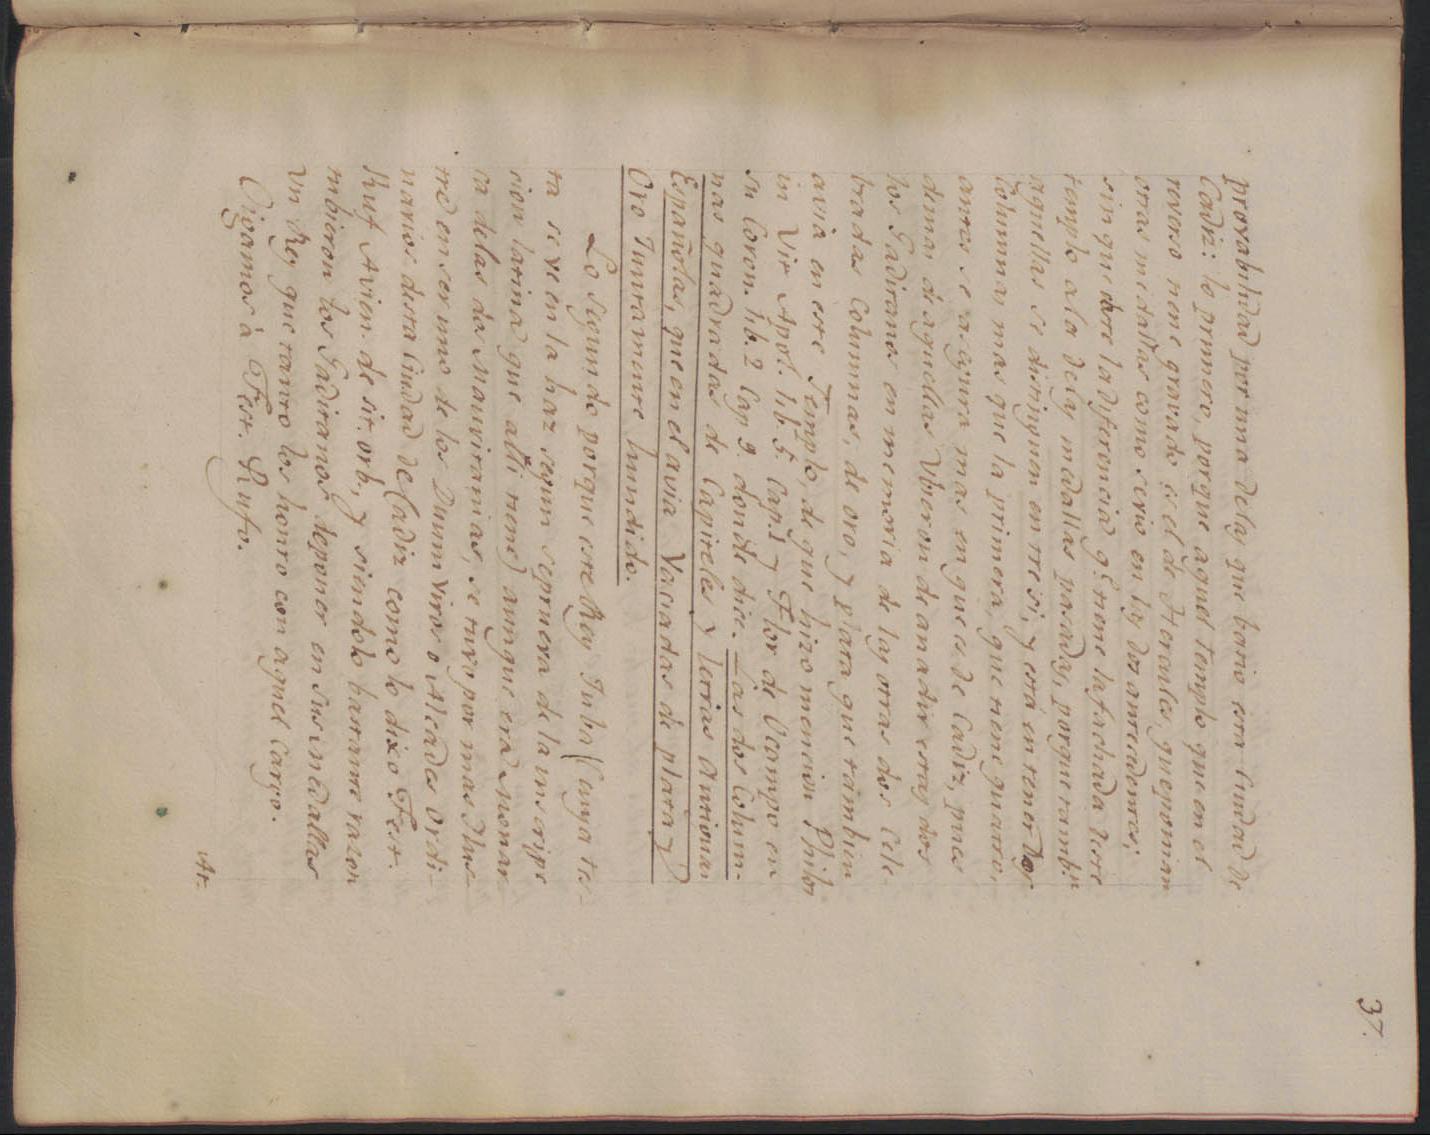 37.
provabilidad por una de las que batio esta Ciudad de
Cadiz: lo primero, porque aquel templo que en el
reverso tiene gravado és el de Hercules, que ponian
otras medallas como se vio en las dos antecedentes;
sin que obste la diferencia q.e tiene la fachada deste
templo a la de las medallas pasadas, porque tambien
aquellas se distinguen entre si, y está en tener dos
Columnas mas que la primera, que tiene quatro,
antes se asegura mas en que es de Cadiz, pues
demas de aquellas Vbieron de anadir estas dos
los Gaditanos en memoria de las otras dos Cele-
bradas Columnas, de oro, y plata que tambien
avia en este Templo, de que hizo mencion Philos
in Vit Apol. lib. 5. Cap. 1 y Flor de Ocampo en
su Coron. lib. 2 Cap 9. donde dice. Las dos Colum-
nas quadradas de Capiteles y letras antiguas
Españolas, que en el avia Vaciadas de plata y
Oro Juntamente hundido.
Lo segundo porque este Rey Juba (cuya tes-
ta se ve en la haz segun se prueva de la inscrip-
sion latina que alli tiene) aunque era Monar-
ca de las dos Mauritanias, se tuvo por mas Ilus-
tre en ser uno de los Duum Viros o Alcaldes Ordi-
narios desta Ciudad de Cadiz como lo dixo Fest.
Ruf Avien. de sit. orb, y siendolo bastante razon
tubieron los Gaditanos de poner en sus medallas
Un Rey que tanto los honro con aquel Cargo.
Oigamos à Fest. Rufo.
At.